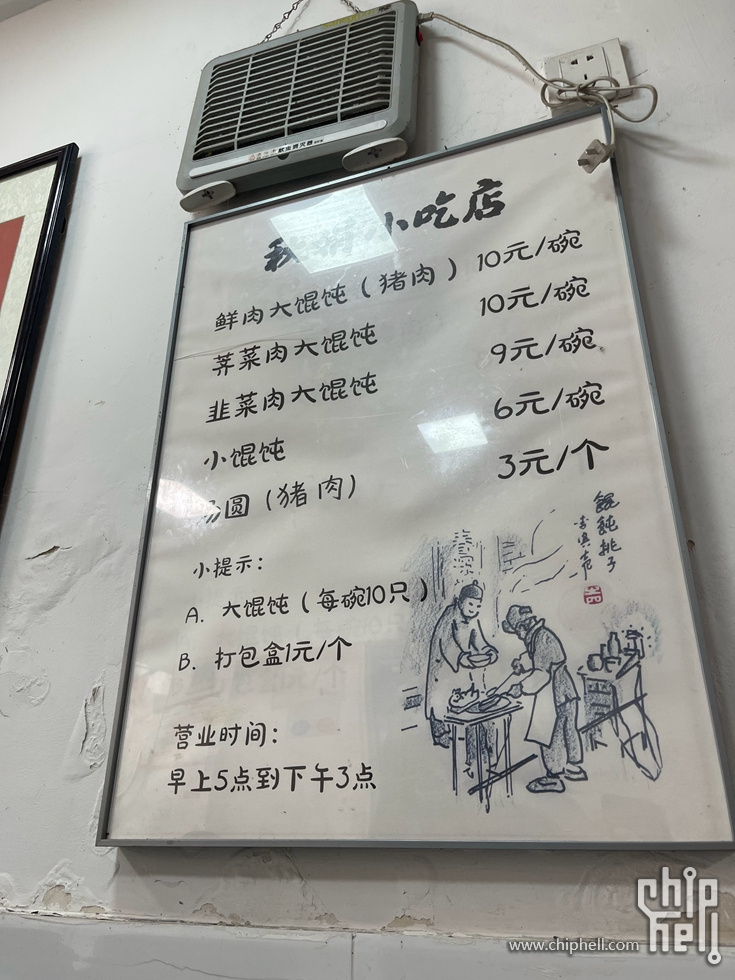 小吃店
鲜肉大馄饨（猪肉） 10元/碗
荠菜肉大馄饨 10元/碗
韭菜肉大馄饨 9元/碗
小馄饨 6元/碗
汤圆（猪肉） 3元/个
小提示：
A. 大馄饨（每碗10只）
B. 打包盒1元/个
营业时间：
早上5点到下午3点
馄饨挑子
chip
hell
www.chiphell.com